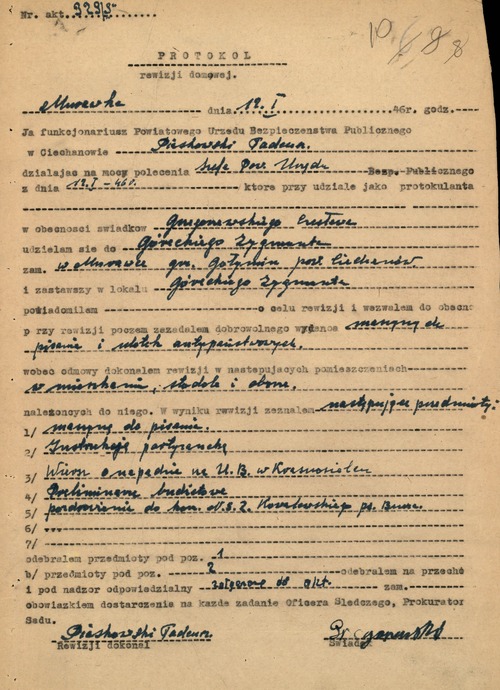 Nr. akt. 929/5
10 8 8
PROTOKOL
rewizji domowej.
Murawka dnia 12.I 46r godz.
Ja funkcjonariusz Powiatowego Urzedu Bezpieczenstwa Publicznego
w Ciechanowie Piaskowski Tadeusz.
dzialajac na mocy polecenia Szefa Pow. Urzędu Bezp. Publicznego
z dnia 12.I-46r. ktore przy udziale jako protokulanta
w obecnosci swiadkow
udzielam sie do Góreckiego Zygmunta
zam. w Murawce gm. Gołymin pow. Ciechanów
i zastawszy w lokalu Góreckiego Zygmunta
powiadomilem o celu rewizji i wezwalem do obecno
p rzy rewizji poczem zazadalem dobrowolnego wydania maszyny do
pisania i ulotek antypaństwowych.
wobec odmowy dokonalem rewizji w nastepujacych pomieszczeniach
w mieszkaniu, stodole i oborze.
należoncych do niego. W wyniku rewwizji zeznalem następujące przedmioty:
1/ maszynę do pisania.
2/ Instrukcję partyzancką
3/ Wiersz o napadzie na U.B. w Krasnosielcu
4/ Preliminarz budżetowe
5/ pozdrowienie do kom. N.S.Z. Kowalewskiego ps. Bursa.
6/
7/
odebralem przedmioty pod poz. 1
b/ przedmioty pod poz. 2 odebralem na przecho
i pod nadzor odpowiedzialny załączone do akt. zam.
obowiazkiem dostarczenia na kazde zadanie Oficera Sledczego, Prokurator
Sadu.
Piaskowski Tadeusz
Rewizji dokonal Swiadek